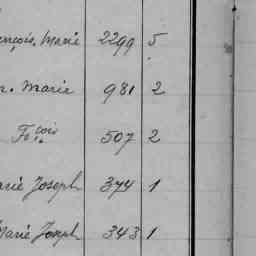 ençois, Marie 2299 5
n. Marie 981 2
Fçois 507 2
arie Joseph 374 1
Marie Joseph 343 1